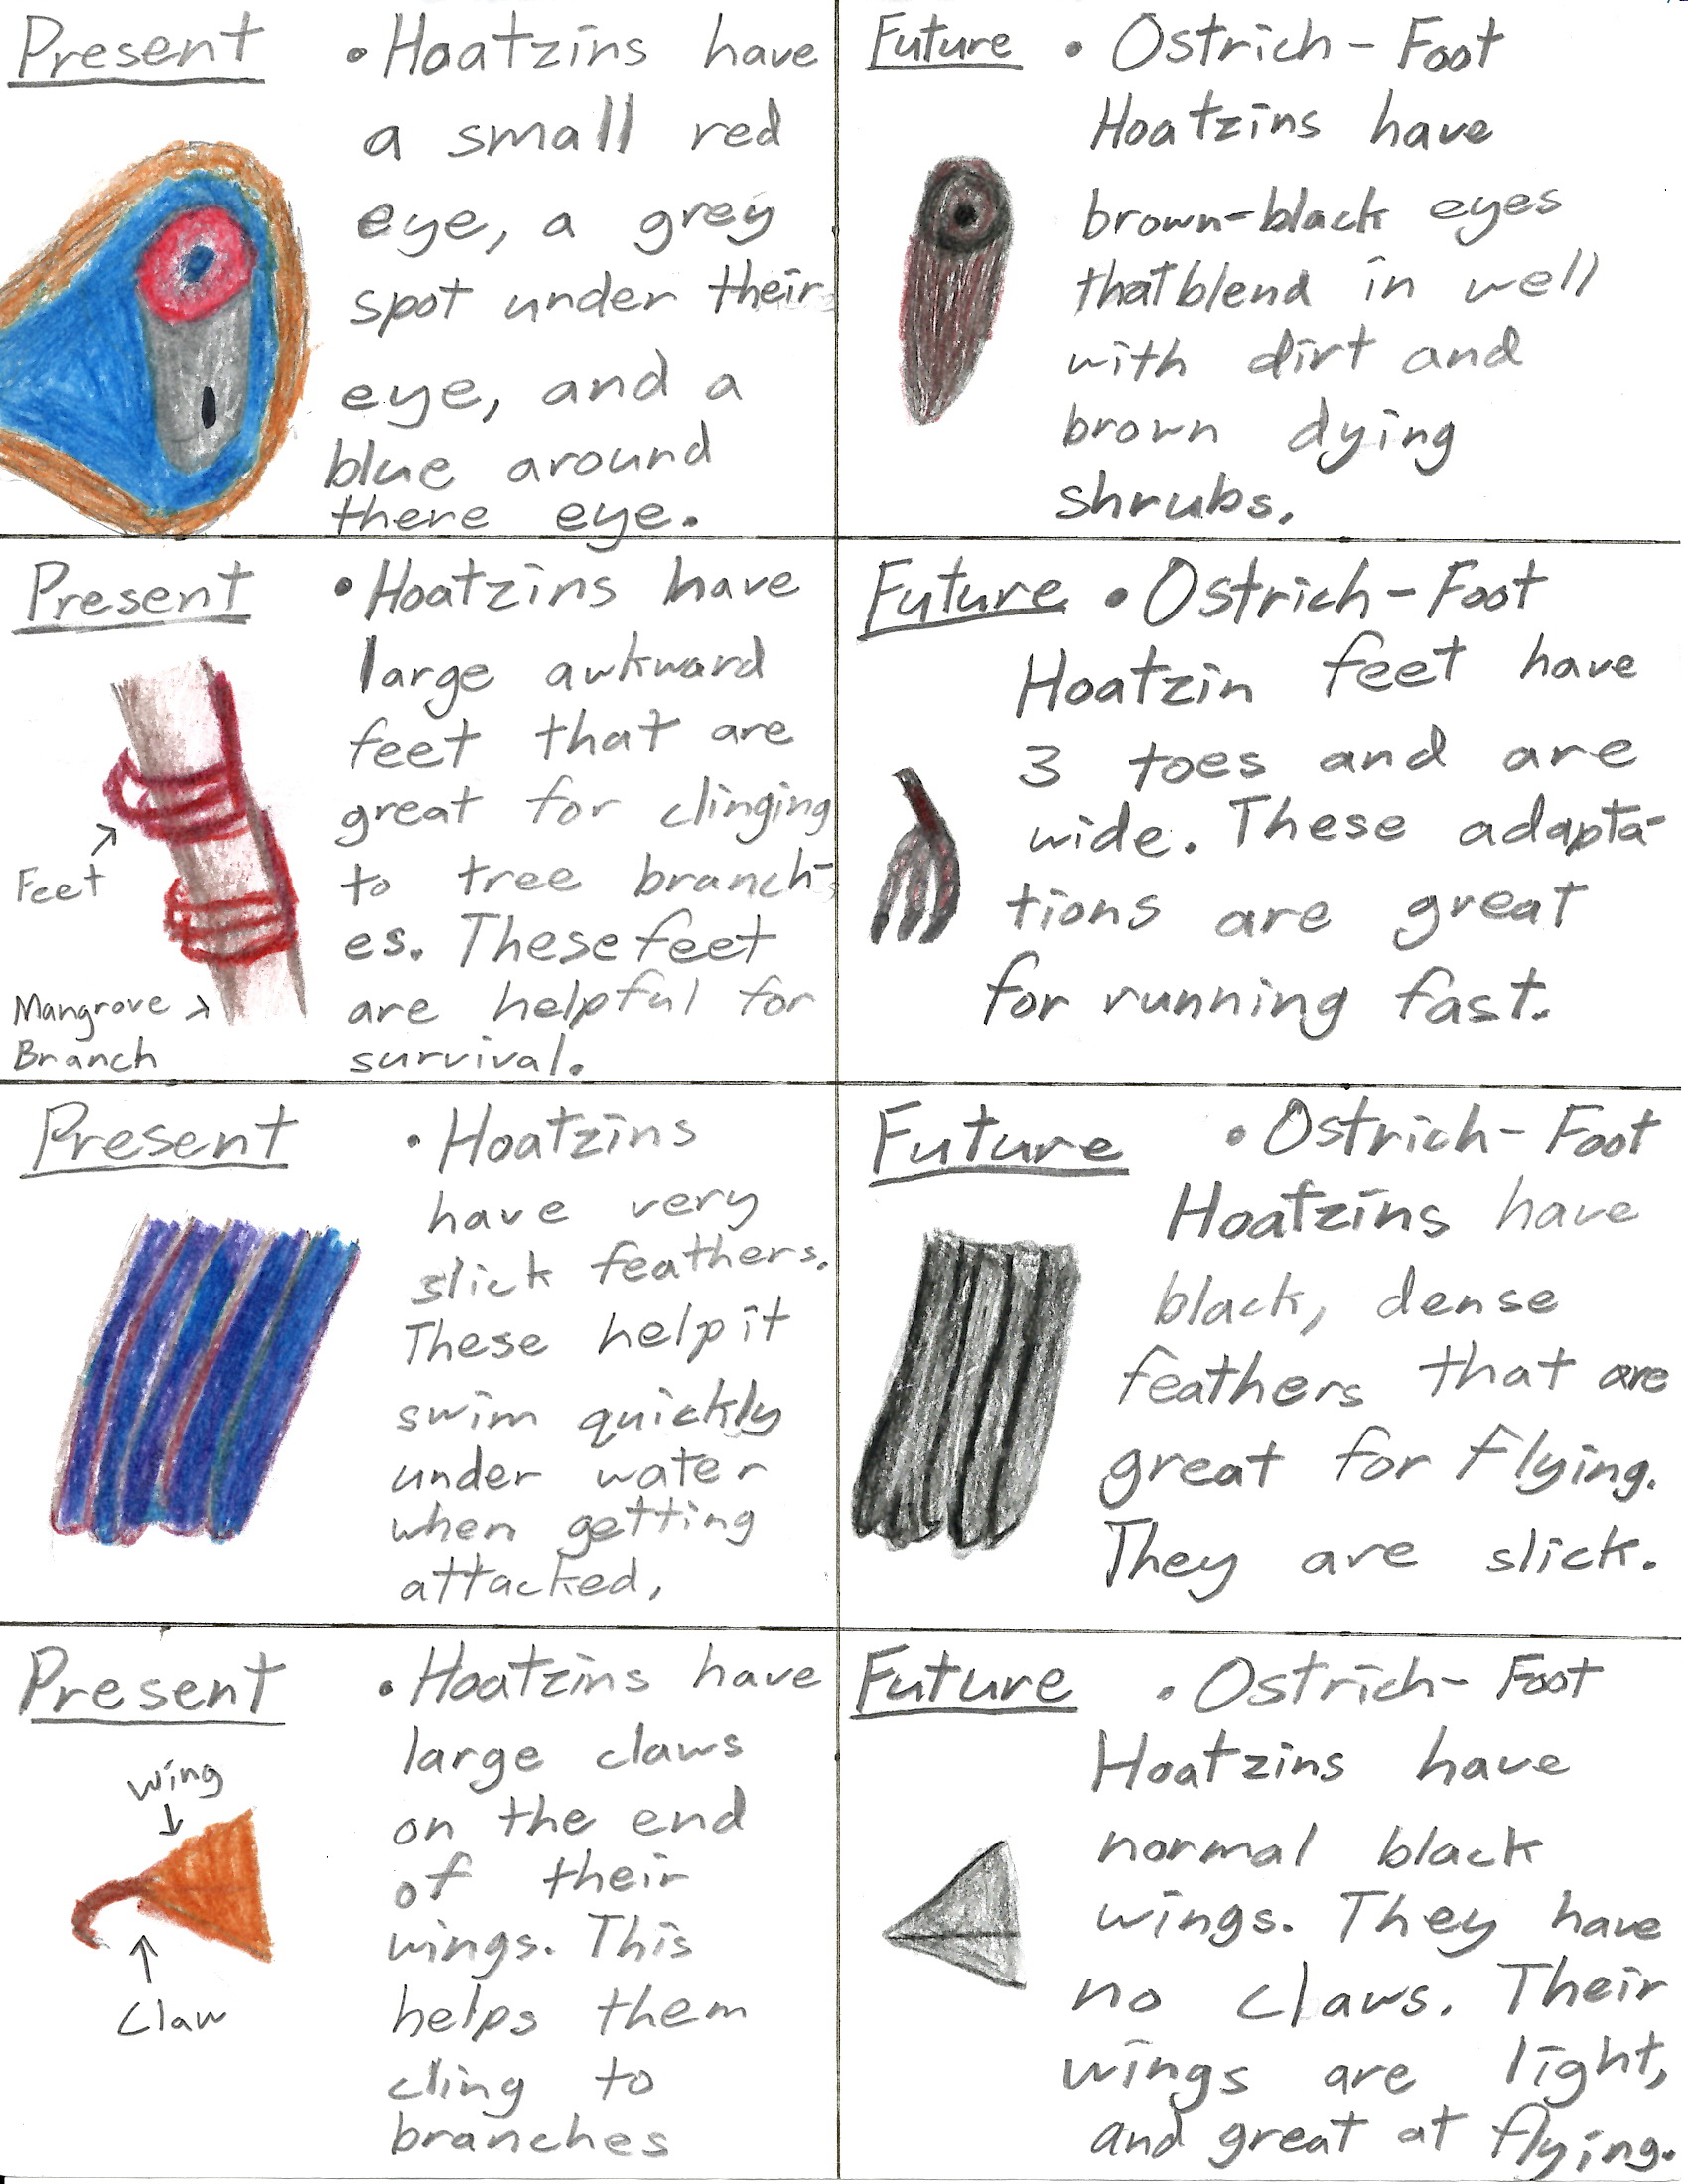 Present
• Hoatzins have
a small red
eye, a grey
spot under their
eye, and a
blue around
there eye.
Future
• Ostrich-Foot
Hoatzins have
brown-black eyes
that blend in well
with dirt and
brown dying
shrubs.
Present
• Hoatzins have
large awkward
feet that are
great for clinging
to tree branch-
es. These feet
are helpful for
survival.
Feet
Mangrove
Branch
Future
• Ostrich-Foot
Hoatzin feet have
3 toes and are
wide. These adapta-
tions are great
for running fast.
Present
• Hoatzins
have very
slick feathers.
These help it
swim quickly
under water
when getting
attacked.
Future
• Ostrich-Foot
Hoatzins have
black, dense
feathers that are
great for flying.
They are slick.
Present
• Hoatzins have
large claws
on the end
of their
wings. This
helps them
cling to
branches
wing
Claw
Future
• Ostrich-Foot
Hoatzins have
normal black
wings. They have
no claws. Their
wings are light,
and great at flying.